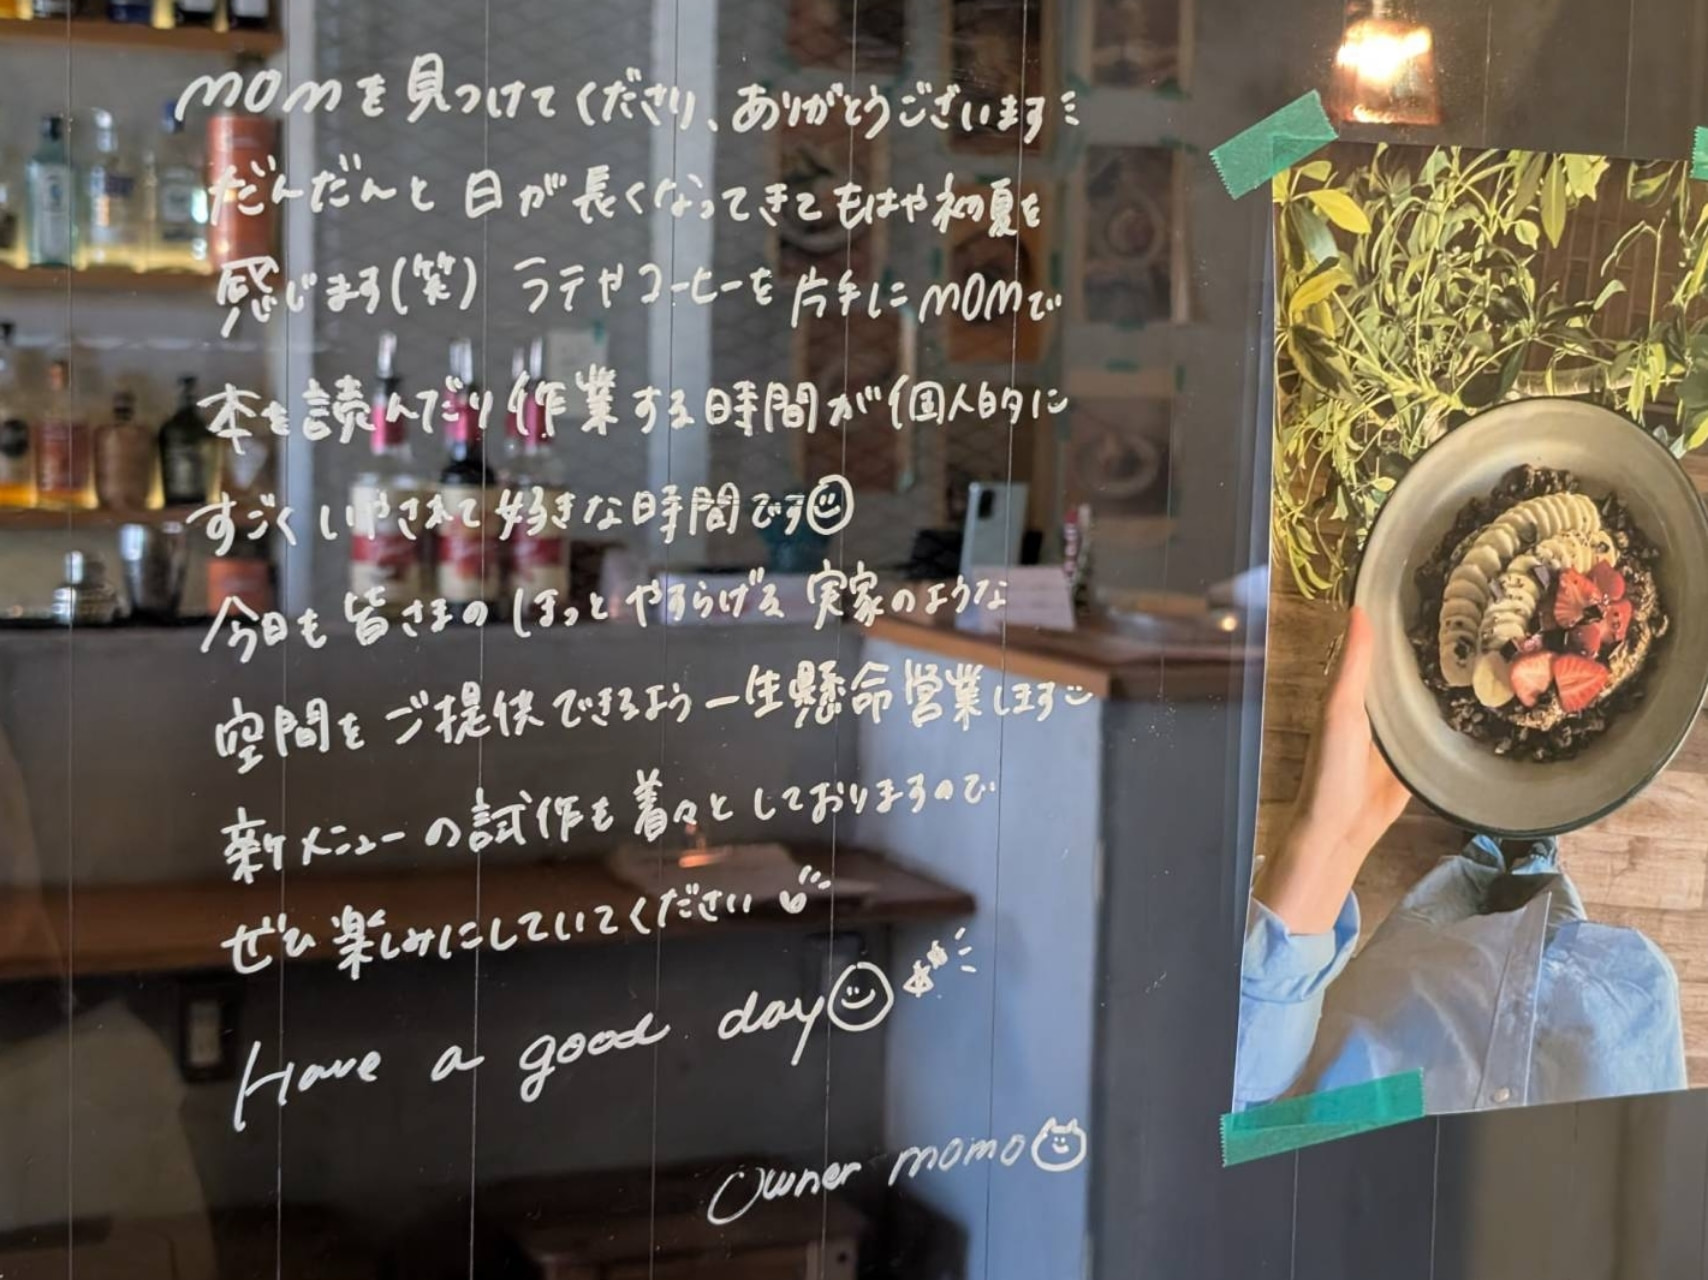 MOMを見つけてくださり、ありがとうございます
だんだんと日が長くなってきてもはや初夏を
感じます(笑) ラテやコーヒーを片手にMOMで
本を読んだり作業する時間が個人的に
すごくいやされて好きな時間です
今日も皆さまのほっとやすらげる実家のような
空間をご提供できるよう一生懸命営業します
新メニューの試作も着々としておりますので
ぜひ楽しみにしていてください
Have a good day
Owner momo